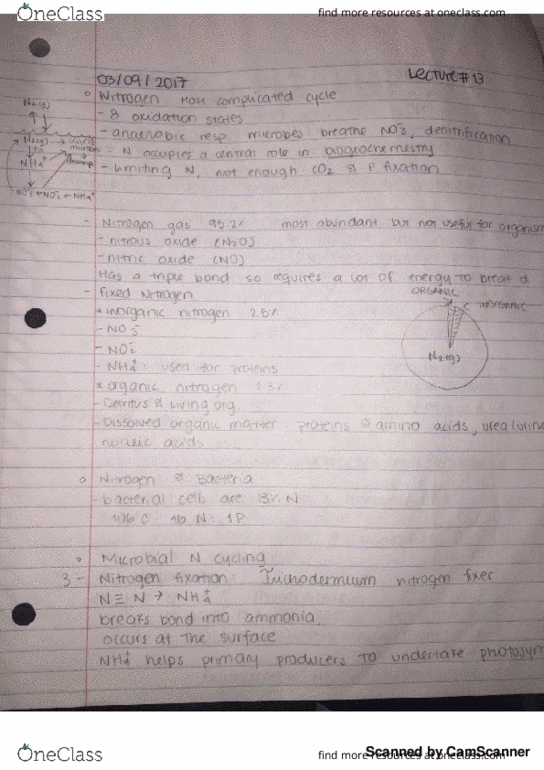 OneClass
find more resources at oneclass.com
03/09/2017
Lecture #13
Nitrogen Most complicated cycle
- 8 oxidation states
- anaerobic resp microbes breathe NO3-, denitrification
- N occupies a central role in biogeochemistry
- limiting N, not enough CO2 & P fixation
N2(g)
N2(g) → living
NH4+
NO3- ← NO2- ← NH4+
- Nitrogen gas 95.2% most abundant but not useful for organism
- nitrous oxide (N2O)
- nitric oxide (NO)
Has a triple bond so requires a lot of energy to break it
- Fixed Nitrogen
* inorganic nitrogen 2.5%
- NO3-
- NO2-
- NH4+: used for proteins
* organic nitrogen
- Detritus & living org.
- Dissolved organic matter proteins & amino acids, urea (urine
nucleic acids
ORGANIC
INORGANIC
N2(g)
Nitrogen & Bacteria
- bacterial cells are 13% N
106 C 16 N : 1P
Microbial N cycling
3 - Nitrogen fixation: Trichodermium nitrogen fixer
N ≡ N → NH4+
breaks bond into ammonia.
occurs at the surface
NH4+ helps primary producers to undertake photosyn
OneClass
find more resources at oneclass.com
Scanned by CamScanner